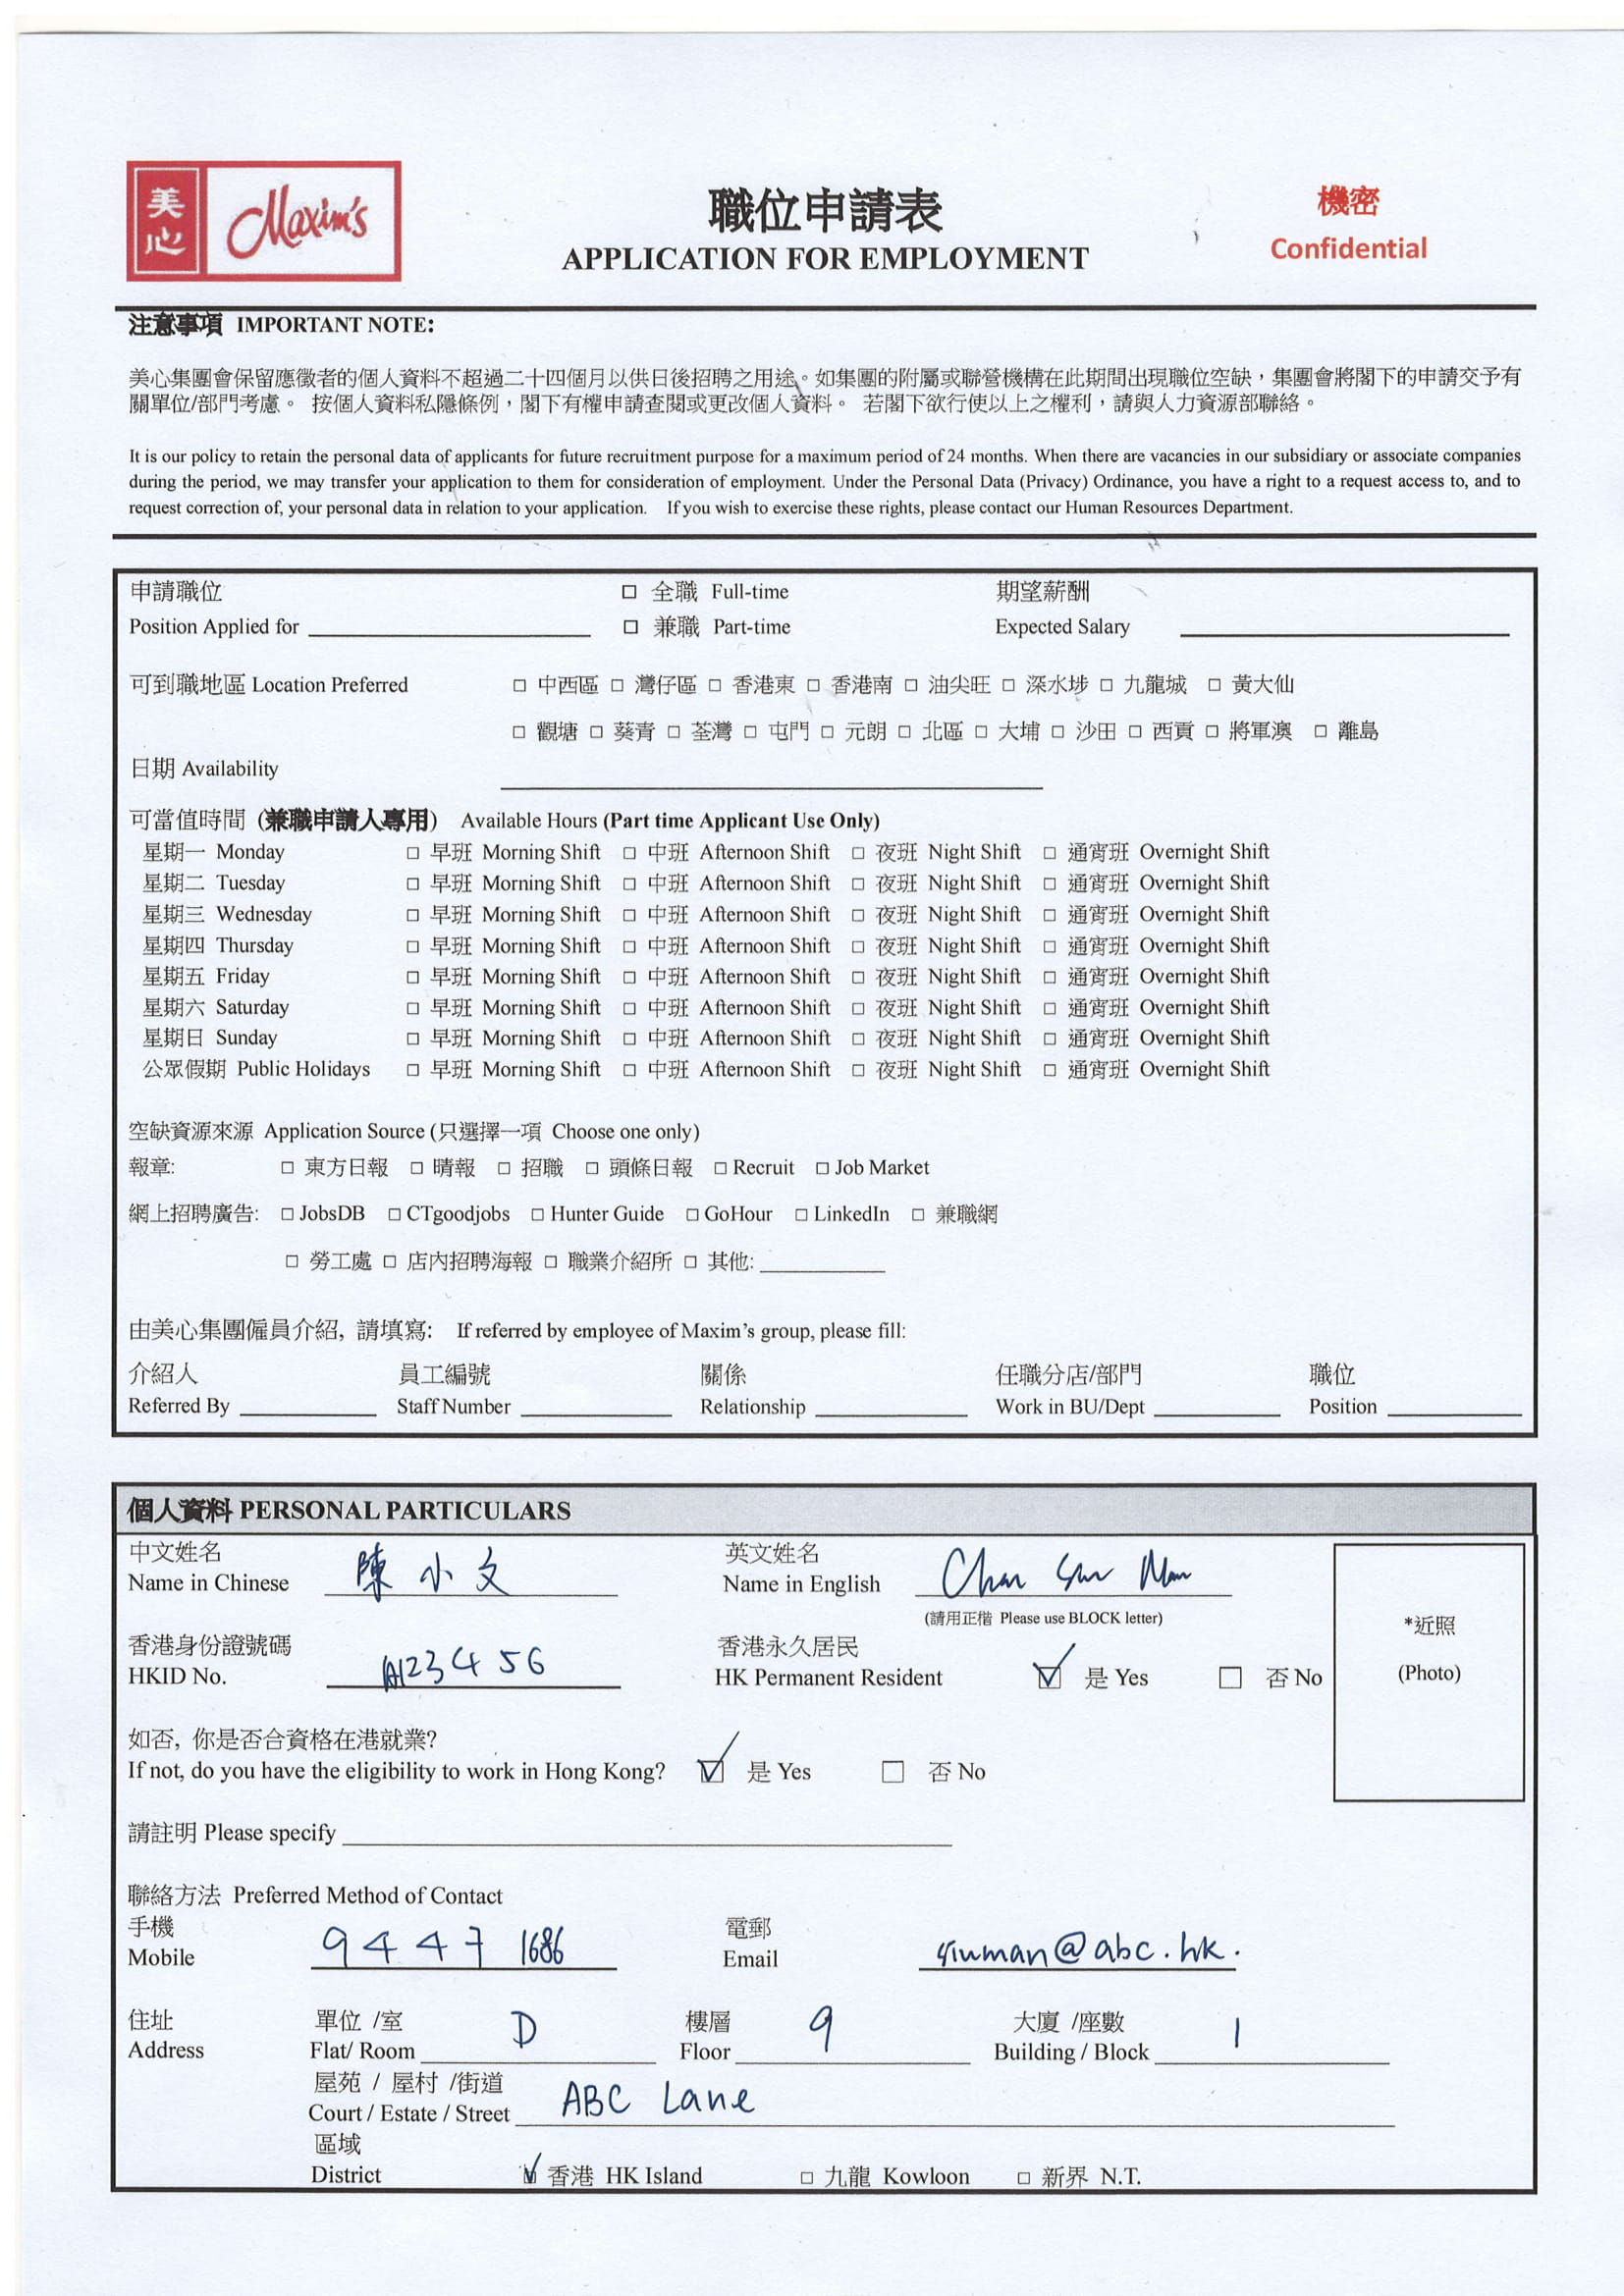 美心 Maxim's
職位申請表
APPLICATION FOR EMPLOYMENT
機密
Confidential
注意事項 IMPORTANT NOTE:
美心集團會保留應徵者的個人資料不超過二十四個月以供日後招聘之用途。如集團的附屬或聯營機構在此期間出現職位空缺，集團會將閣下的申請交予有
關單位/部門考慮。 按個人資料私隱條例，閣下有權申請查閱或更改個人資料。 若閣下欲行使以上之權利，請與人力資源部聯絡。
It is our policy to retain the personal data of applicants for future recruitment purpose for a maximum period of 24 months. When there are vacancies in our subsidiary or associate companies
during the period, we may transfer your application to them for consideration of employment. Under the Personal Data (Privacy) Ordinance, you have a right to a request access to, and to
request correction of, your personal data in relation to your application. If you wish to exercise these rights, please contact our Human Resources Department.
申請職位 □ 全職 Full-time 期望薪酬
Position Applied for □ 兼職 Part-time Expected Salary
可到職地區 Location Preferred □ 中西區 □ 灣仔區 □ 香港東 □ 香港南 □ 油尖旺 □ 深水埗 □ 九龍城 □ 黃大仙
□ 觀塘 □ 葵青 □ 荃灣 □ 屯門 □ 元朗 □ 北區 □ 大埔 □ 沙田 □ 西貢 □ 將軍澳 □ 離島
日期 Availability
可當值時間 (兼職申請人專用) Available Hours (Part time Applicant Use Only)
星期一 Monday □ 早班 Morning Shift □ 中班 Afternoon Shift □ 夜班 Night Shift □ 通宵班 Overnight Shift
星期二 Tuesday □ 早班 Morning Shift □ 中班 Afternoon Shift □ 夜班 Night Shift □ 通宵班 Overnight Shift
星期三 Wednesday □ 早班 Morning Shift □ 中班 Afternoon Shift □ 夜班 Night Shift □ 通宵班 Overnight Shift
星期四 Thursday □ 早班 Morning Shift □ 中班 Afternoon Shift □ 夜班 Night Shift □ 通宵班 Overnight Shift
星期五 Friday □ 早班 Morning Shift □ 中班 Afternoon Shift □ 夜班 Night Shift □ 通宵班 Overnight Shift
星期六 Saturday □ 早班 Morning Shift □ 中班 Afternoon Shift □ 夜班 Night Shift □ 通宵班 Overnight Shift
星期日 Sunday □ 早班 Morning Shift □ 中班 Afternoon Shift □ 夜班 Night Shift □ 通宵班 Overnight Shift
公眾假期 Public Holidays □ 早班 Morning Shift □ 中班 Afternoon Shift □ 夜班 Night Shift □ 通宵班 Overnight Shift
空缺資源來源 Application Source (只選擇一項 Choose one only)
報章: □ 東方日報 □ 晴報 □ 招職 □ 頭條日報 □ Recruit □ Job Market
網上招聘廣告: □ JobsDB □ CTgoodjobs □ Hunter Guide □ GoHour □ LinkedIn □ 兼職網
□ 勞工處 □ 店內招聘海報 □ 職業介紹所 □ 其他:
由美心集團僱員介紹, 請填寫: If referred by employee of Maxim's group, please fill:
介紹人 員工編號 關係 任職分店/部門 職位
Referred By Staff Number Relationship Work in BU/Dept Position
個人資料 PERSONAL PARTICULARS
中文姓名 陳小文 英文姓名 Chan Siu Man
Name in Chinese Name in English
(請用正楷 Please use BLOCK letter)
*近照
(Photo)
香港身份證號碼 A123456 香港永久居民
HKID No. HK Permanent Resident ☑ 是 Yes □ 否 No
如否, 你是否合資格在港就業?
If not, do you have the eligibility to work in Hong Kong? ☑ 是 Yes □ 否 No
請註明 Please specify
聯絡方法 Preferred Method of Contact
手機 9447 1686 電郵 siuman@abc.hk.
Mobile Email
住址 單位 /室 D 樓層 9 大廈 /座數 1
Address Flat/ Room Floor Building / Block
屋苑 / 屋村 /街道 ABC Lane
Court / Estate / Street
區域
District ☑ 香港 HK Island □ 九龍 Kowloon □ 新界 N.T.